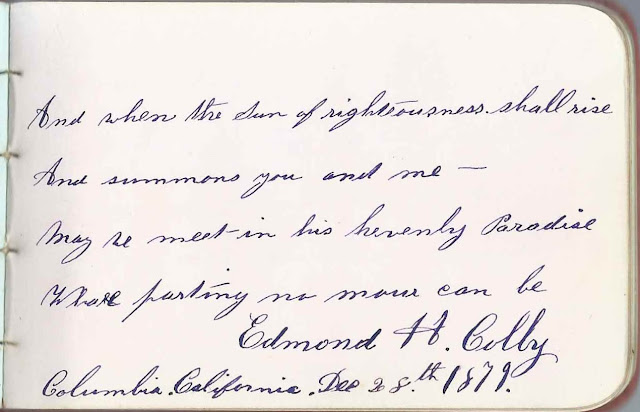 And when the Sun of righteousness shall rise
And summons you and me —
May we meet in his hevenly Paradise
Whare parting no mour can be
Edmond H. Colby
Columbia. California. Dec 28.th 1879.